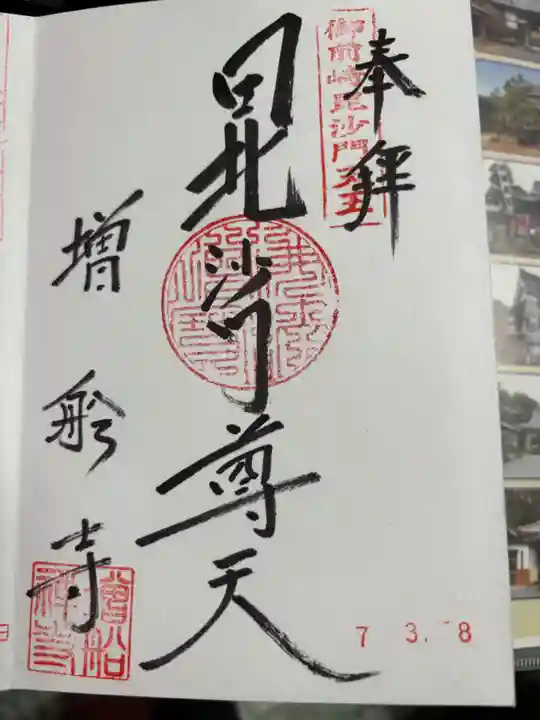 奉拝
御前崎毘沙門天王
毘沙門尊天
増船寺
増船禅寺
7 3. -8